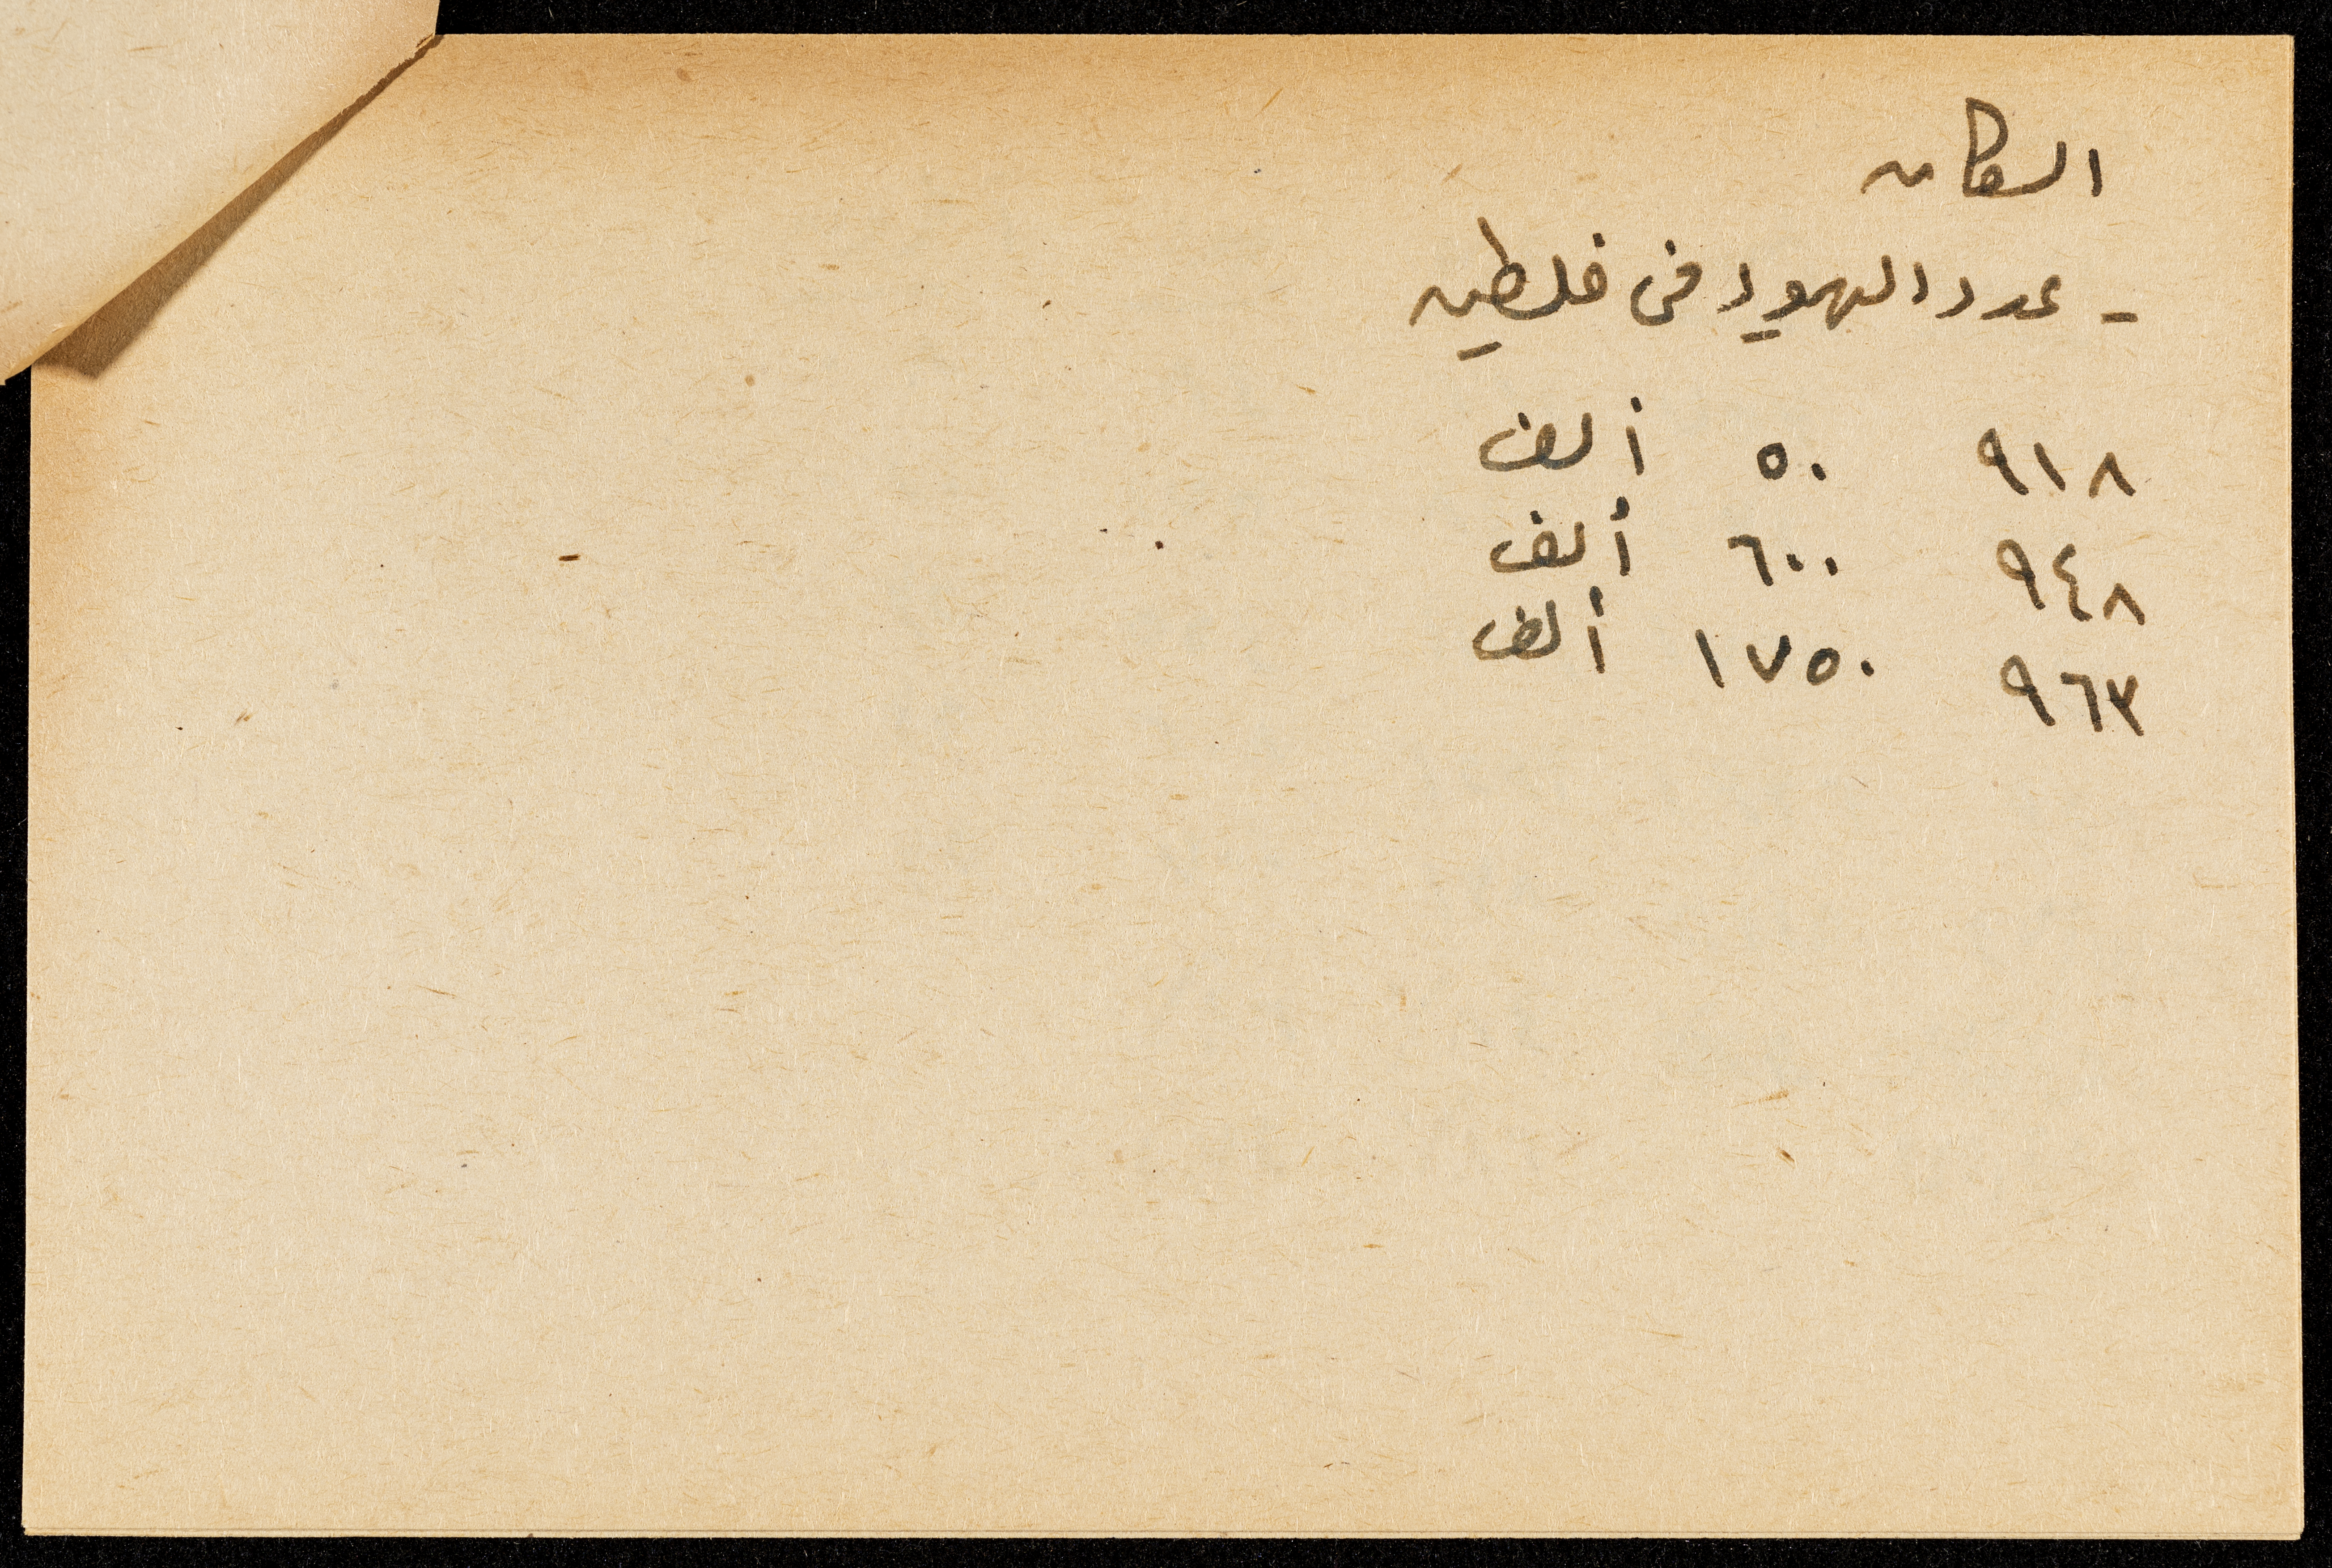 السكان
- عدد اليهود في فلسطين
٩١٨ ٥٠ ألف
٩٤٨ ٦٠٠ ألف
٩٦٣ ١٧٥٠ ألف